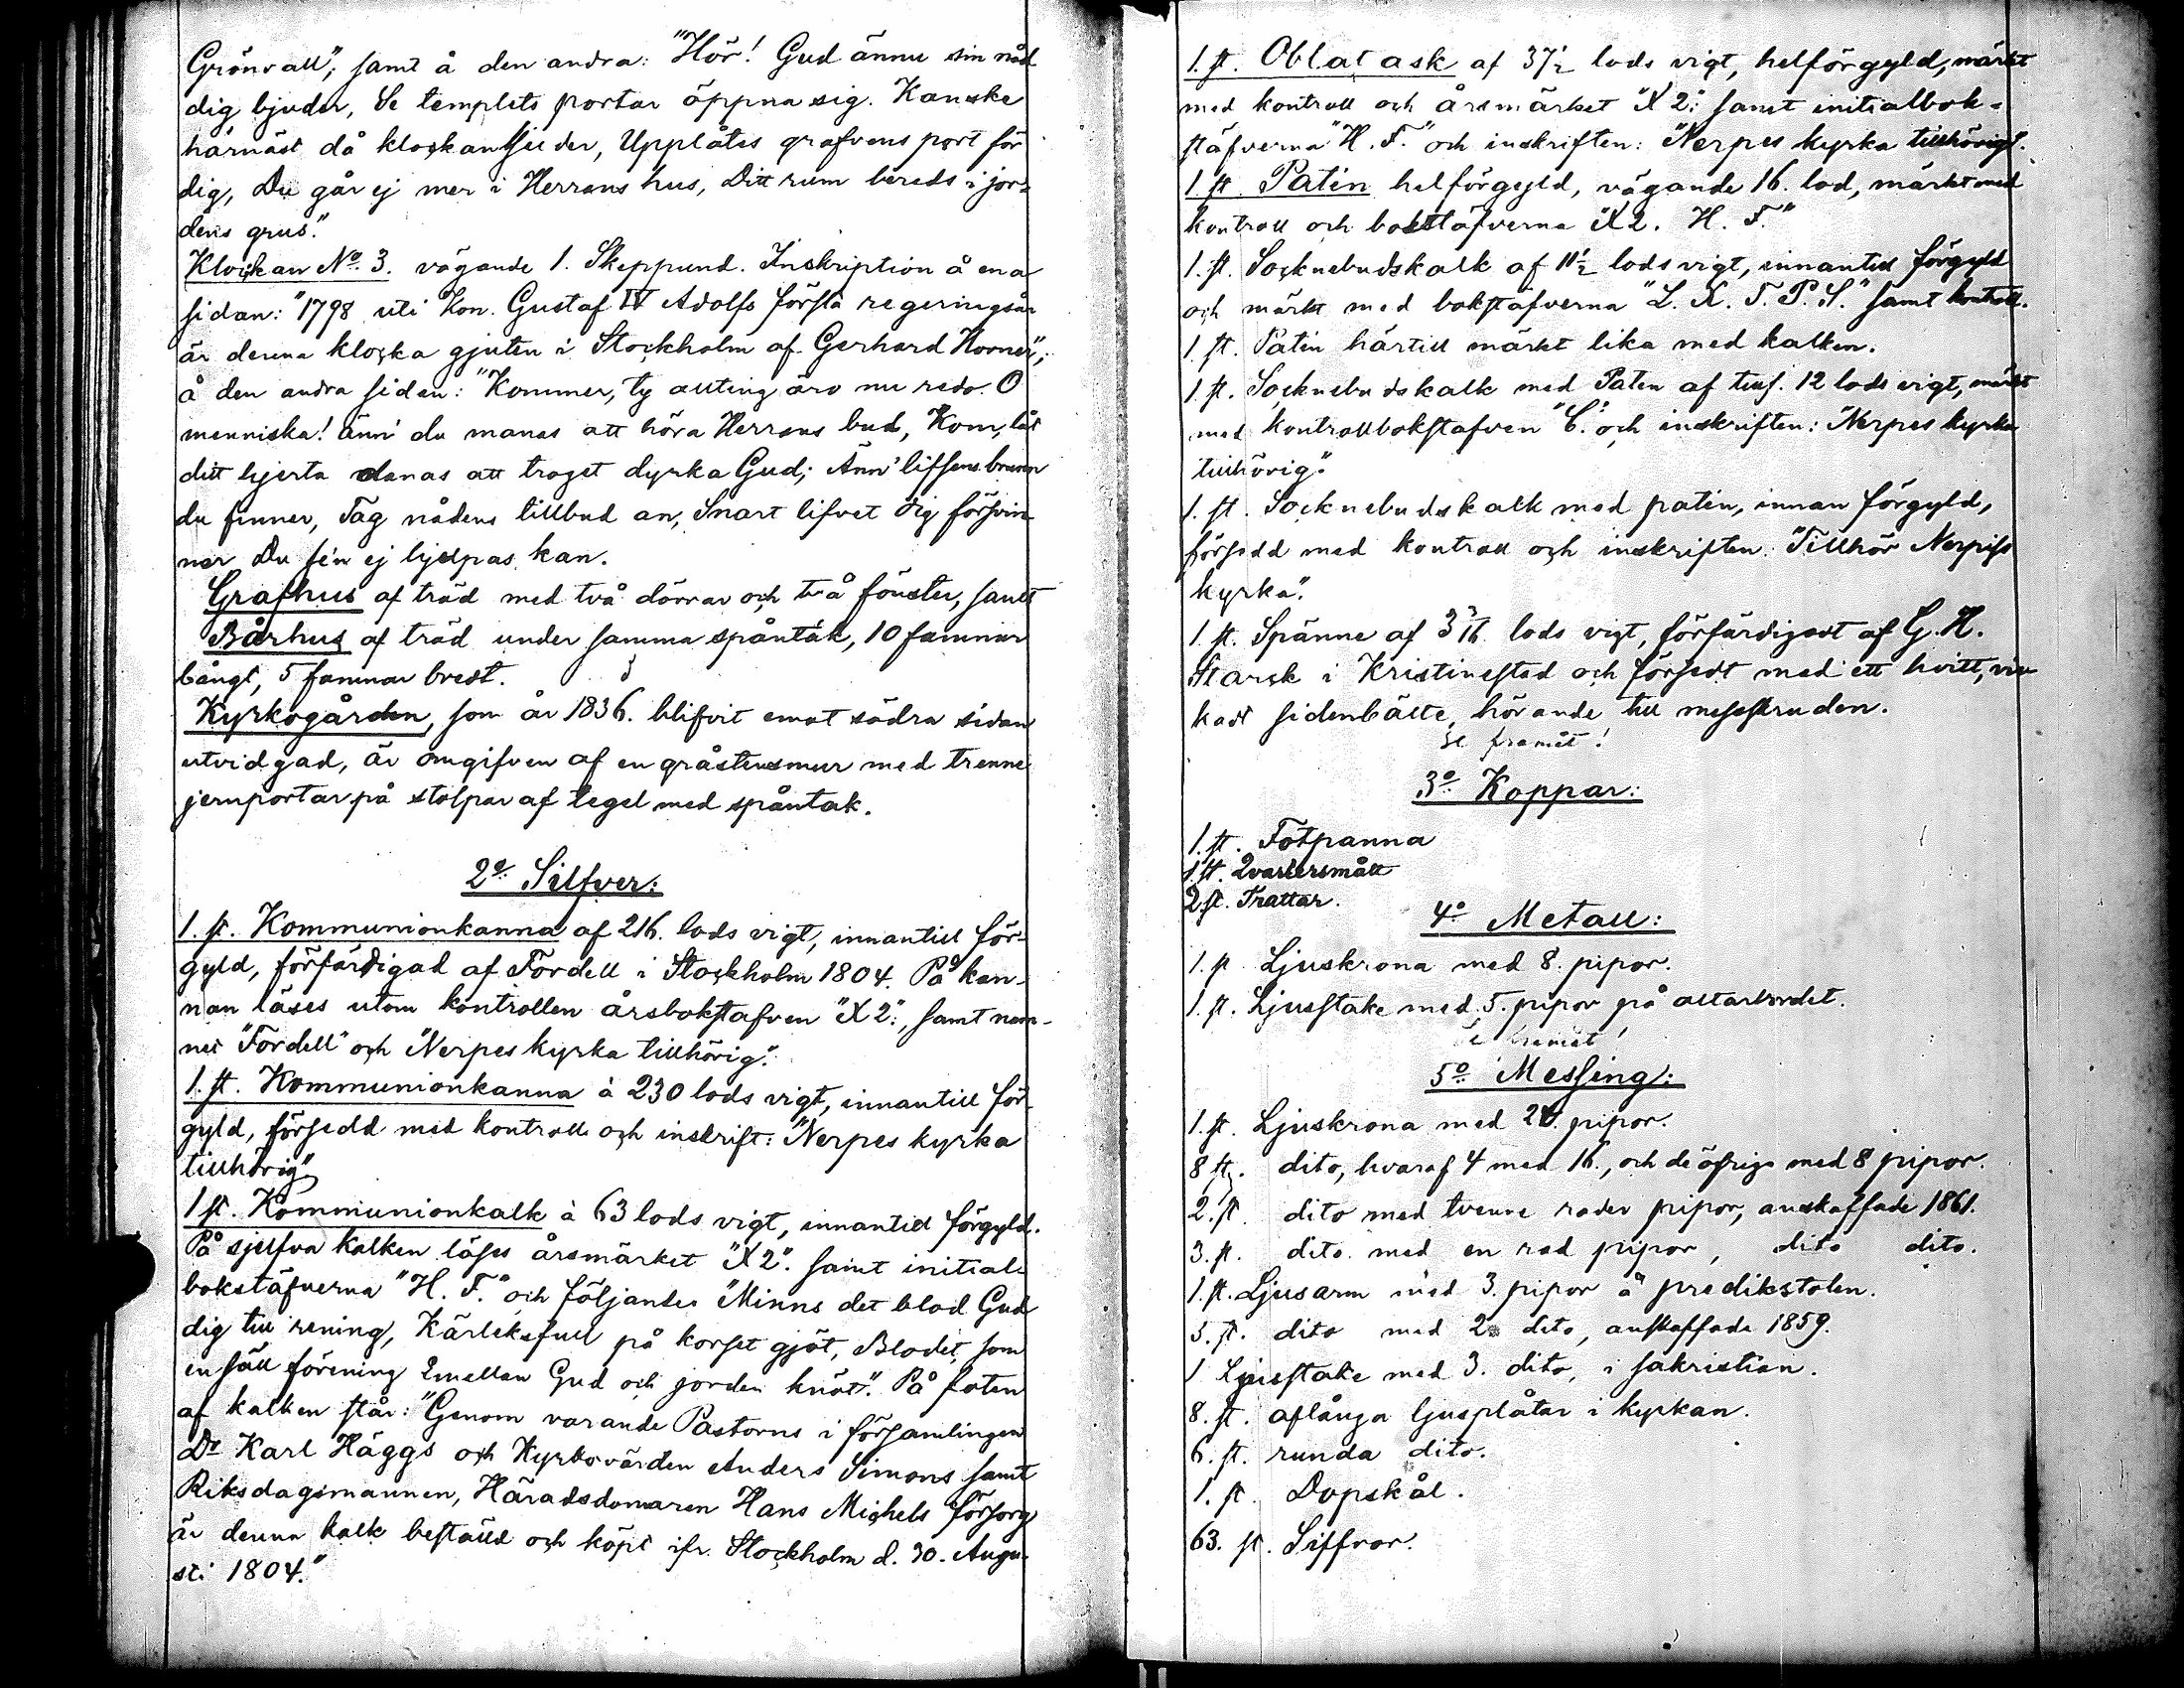 Grönvall", samt å den andra: "Hör! Gud ännu sin nåd
dig bjuder, Se templets portar öppna sig. Kanske
härnäst då klockan ljuder, Upplåtes grafvens port för
dig, Du går ej mer i Herrans hus, Ditt rum bereds i jor=
dens grus."
Klockan No. 3. vägande 1. Skeppund. Inskription å ena
sidan: "1798 uti Kon. Gustaf IV Adolfs första regeringsår
är denna klocka gjuten i Stockholm af Gerhard Horner",
å den andra sidan: "Kommer, ty allting äro nu redo. O
menniska! änn' du manas att höra Herrans bud, Kom, låt
ditt hjerta danas att troget dyrka Gud; Änn' lifsens brunn
du finner, Tag nådens tillbud an, Snart lifvet dig försvin-
ner Du se'n ej hjelpas kan.
Grafhus af träd med två dörrar och två fönster, samt
Bårhus af träd under samma spåntak, 10 famnar
långt, 5 famnar bredt.
Kyrkogården, som år 1836. blifvit emot södra sidan
utvidgad, är omgifven af en gråstensmur med trenne
jernportar på stolpar af tegel med spåntak.
2o. Silfver:
1. st. Kommunionkanna af 216. lods vigt, innantill för-
gyld, förfärdigad af Fordell i Stockholm 1804. På kan-
nan läses utom kontrollen årsbokstafven "X 2.", samt nam-
net "Fordell" och "Nerpes kyrka tillhörig."
1. st. Kommunionkanna à 230 lods vigt, innantill för-
gyld, försedd med kontroll och inskrift: "Nerpes kyrka
tillhörig"
1 st. Kommunionkalk à 63 lods vigt, innantill förgyld.
På sjelfva kalken läses årsmärket "X 2". samt initial-
bokstäfverna "H. F." och följande: "Minns det blod Gud
dig till rening, Kärleksfull på korset gjöt, Blodet, som
en säll förening Emellan Gud och jorden knöt". På foten
af kalken står: "Genom varande Pastorns i församlingen
Dr Karl Häggs och Kyrkovärden Anders Simons samt
Riksdagsmannen, Häradsdomaren Hans Michels försorg
är denna kalk beställd och köpt ifr. Stockholm d. 30. Augu-
sti 1804."
1. st. Oblatask af 37½ lods vigt, helförgyld, märkt
med kontroll och årsmärket "X 2." samt initialbok-
stäfverna "H. F." och inskriften: "Nerpes kyrka tillhörigt.
1 st. Patén helförgyld, vägande 16. lod, märkt med
kontroll och bokstäfverna "X 2. H. F."
1. st. Socknebudskalk af 11½ lods vigt, innantill förgyld
och märkt med bokstäfverna "L. X. T. P. S." samt kontroll.
1 st. Patén härtill märkt lika med kalken.
1. st. Socknebudskalk med Patén af tills. 12 lods vigt, märkt
med kontrollbokstafven "C." och inskriften: "Nerpes kyrka
tillhörig."
1. st. Socknebudskalk med patén, innan förgyld,
försedd med kontroll och inskriften: "Tillhör Nerpiss
kyrka."
1. st. Spänne af 3 3/16. lods vigt, förfärdigadt af G. H.
Starck i Kristinestad och försedt med ett hvitt, vir
kadt sidenbälte, hörande till messskruden.
Se framåt!
3o. Koppar:
1. st. Fotpanna
1 st. Qvartersmått
2 st. Trattar.
4o Metall:
1. st. Ljuskrona med 8. pipor.
1. st. Ljusstake med 5. pipor på altarbordet.
Se framåt!
5o. Messing:
1. st. Ljuskrona med pipor.
8 st. dito, hvaraf 4 med 16., och de öfriga med 8 pipor.
2. st. dito med tvenne rader pipor, anskaffade 1861.
3. st. dito. med en rad pipor, dito dito.
1. st. Ljusarm med 3. pipor å predikstolen.
3. st. dito med 2 dito, anskaffade 1859.
1 Ljusstake med 3. dito, i sakristian.
8. st. aflånga ljusplåtar i kyrkan.
6. st. runda dito.
1. st. Dopskål.
63. st. Siffror.